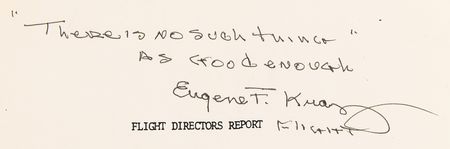 "There is no such thing"
as good enough
Eugene F. Kranz
FLIGHT DIRECTORS REPORT Flight